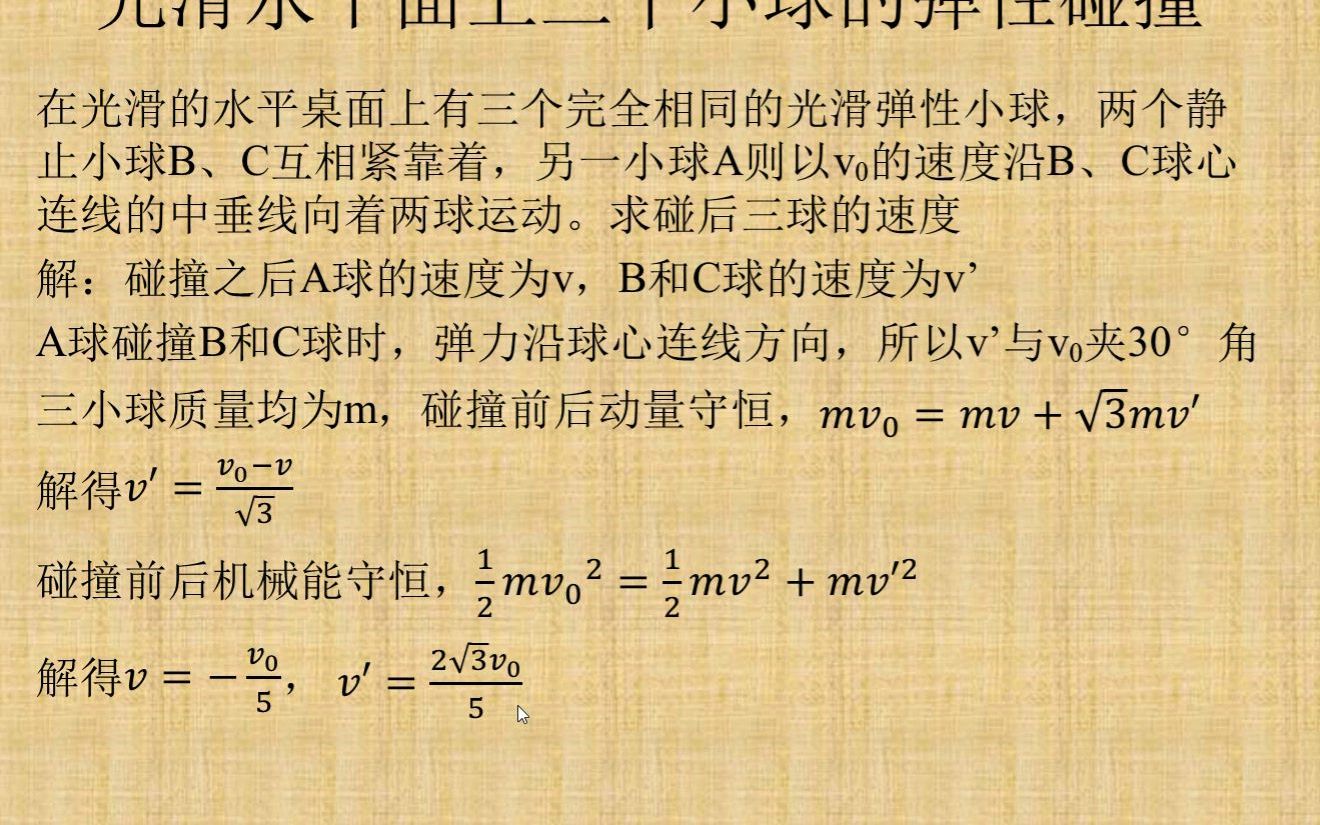 光滑水平面上三个小球的弹性碰撞
在光滑的水平桌面上有三个完全相同的光滑弹性小球，两个静
止小球B、C互相紧靠着，另一小球A则以v₀的速度沿B、C球心
连线的中垂线向着两球运动。求碰后三球的速度
解：碰撞之后A球的速度为v，B和C球的速度为v’
A球碰撞B和C球时，弹力沿球心连线方向，所以v’与v₀夹30°角
三小球质量均为m，碰撞前后动量守恒，mv₀ = mv + √3mv′
解得v′ = (v₀−v)/√3
碰撞前后机械能守恒，1/2 mv₀² = 1/2 mv² + mv′²
解得v = −v₀/5， v′ = 2√3v₀/5